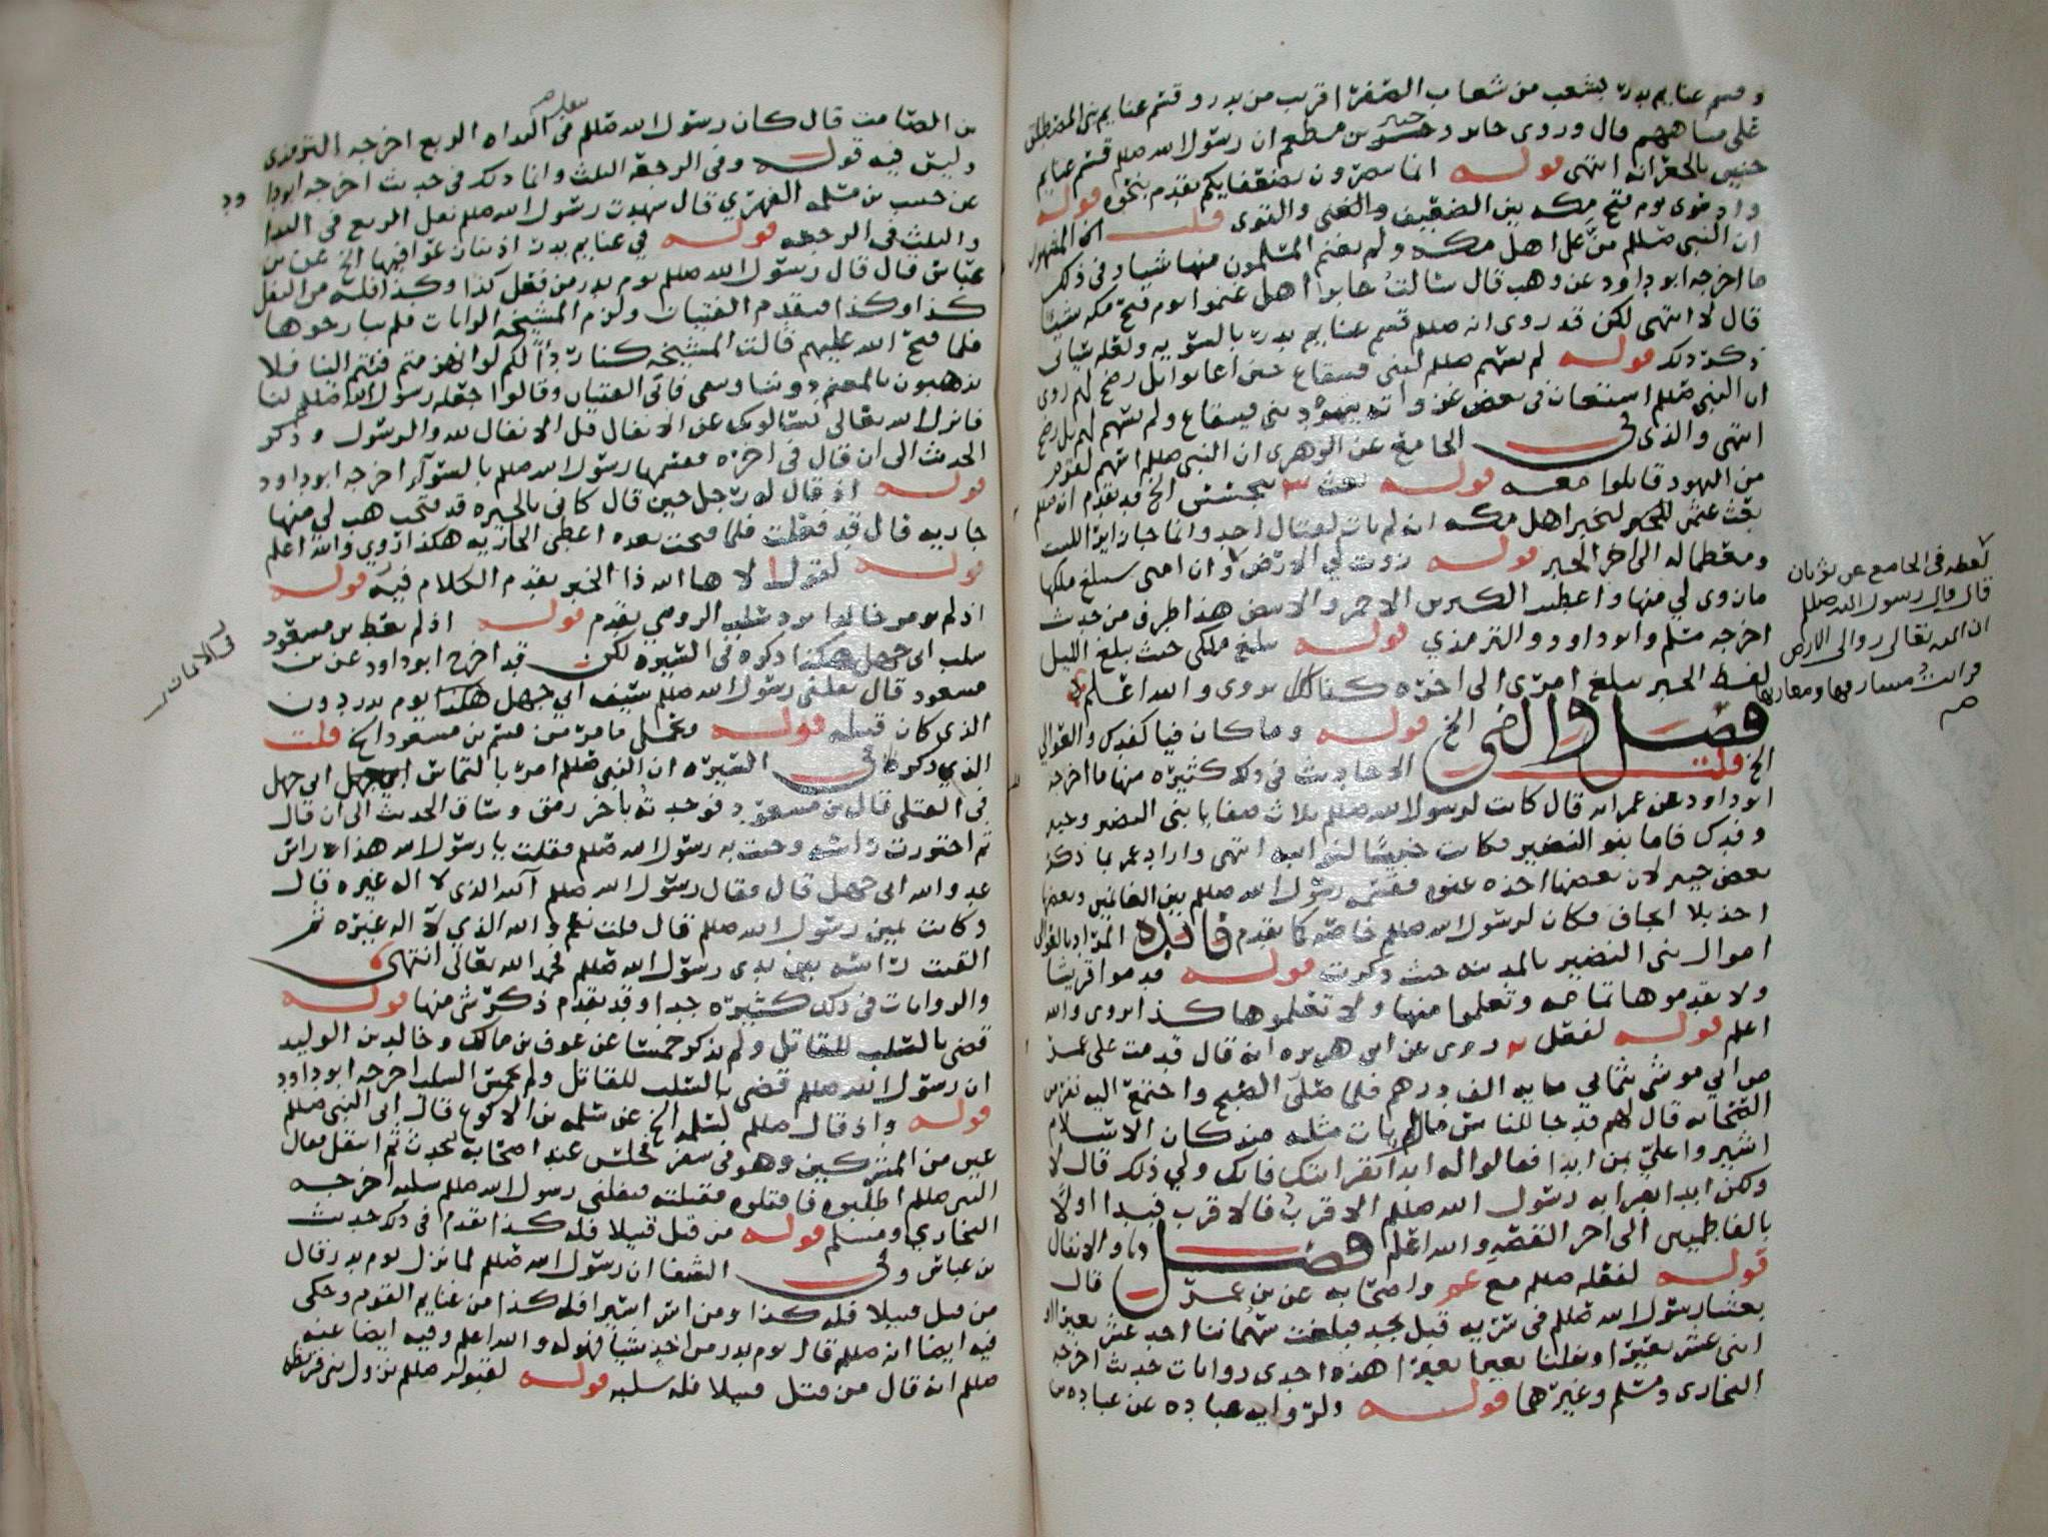 وقسم غنايم بدر بشعب من شعاب الصفرا قريب من بدر وقسم غنايم بنى المصطلق
على مياههم قال وروى جابر وجبير بن مطعم ان رسول الله صللم قسم غنايم
حنين بالجعرانه انتهى قوله انما تنصرون بضعفايكم تقدم بنحوه قوله
واذ هوى يوم فتح مكه بين الضعيف والغنى والقوى قلت المشهور
ان النبي صللم منّ على اهل مكه ولم يغنم المسلمون منها شيا وفى ذلك
ما اخرجه ابو داود عن وهب قال سالت جابرا اهل غنموا يوم فتح مكه شيئا
قال لا انتهى لكن قد روى انه صللم قسم غنايم بدر بالسويه ولعله شيا فى
ذكر ذلك قوله لم يسهم صللم لبنى قينقاع حين اعانوا بل رضخ لهم روى
ان النبي صللم استعان فى بعض غزواته بيهود بنى قينقاع ولم يسهم لهم بل رضخ
انتهى والذى فى الجامع عن الزهرى ان النبي صللم اسهم لقوم
من اليهود قاتلوا معه قوله بعث بن جحش الخ قد تقدم انه صللم
بعث عثمن لخبر اهل مكه انه لم يات لقتال احد وانما جا زايرا للبيت
ومعظما له الى اخر الخبر قوله زويت لي الارض وان امتى سيبلغ ملكها
ما زوى لي منها واعطيت الكنزين الاحمر والابيض هذا طرف من حديث
اخرجه مسلم وابو داود والترمذي قوله سيلغ ملكى حيث يبلغ الليل
لفظ الخبر سيلغ امرى الى اخره كذلك يروى والله اعلم
فصل واراضى الخ قوله وما كان فيا كفدك والعوالي
الخ قلت الاحاديث فى ذلك كثيره منها ما اخرجه
ابو داود عن عمر انه قال كانت لرسول الله صللم ثلاث صفايا بنى النضير وخيبر
وفدك فاما بنو النضير فكانت حبيسًا لنوايبه انتهى واراد عمر بما ذكر
بعض خيبر لان بعضها اخذه عنوه فقسمه رسول الله صللم بين الغانمين وبعضها
اخذ بلا ايجاف فكان لرسول الله صللم خاصه كما تقدم فايده المراد بالعوالي
اموال بنى النضير بالمدينه حيث ذكرت قوله قدموا قريشا
ولا تقدموها تمامه وتعلموا منها ولا تعلموها كذا يروى والله
اعلم قوله لفعل روى عن ابى هريره انه قال قدمت على عمر
من ابي موسى بثماني مايه الف درهم فلما صلّى الصبح واجتمع اليه نفر من
الصحابه قال لهم قد جا للناس مال لم يات مثله منذ كان الاسلام
اشيروا علىّ بمن ابدا فقالوا له ابدا بقرابتك فانك ولي ذلك قال لا
ولكن ابدا بقرابه رسول الله صللم الاقرب فالاقرب فبدا اولًا
بالفاطميين الى اخر القصه والله اعلم فصل والانفال
قوله لفعله صللم مع عمر واصحابه عن بن عمر قال
بعثنا رسول الله صللم فى سريه قبل نجد فبلغت سهماننا احد عشر بعيرا او
اثنى عشر بعيرا ونفلنا بعيرا بعيرا هذه احدى روايات حديث اخرجه
البخارى ومسلم وغيرهما قوله ولروايه عباده عن عباده بن
لفظه فى الجامع عن ثوبان
قال قال رسول الله صللم
ان الله تعالى زوى لي الارض
فرايت مشارقها ومغاربها
صح
بن الصامت قال كان رسول الله صللم ينفل فى البداه الربع اخرجه الترمذى
وليس فيه قوله وفى الرجعه الثلث وانما ذلك فى حديث اخرجه ابو داود
عن حبيب بن مسلمه الفهري قال شهدت رسول الله صللم نفل الربع فى البداه
والثلث فى الرجعه قوله في غنايم بدر اذ تنازعوا فيها الخ عن بن
عباس قال قال رسول الله صللم يوم بدر من فعل كذا وكذا فله من النفل
كذا وكذا فتقدم الفتيان ولزم المشيخه الرايات فلم يبارحوها
فلما فتح الله عليهم قالت المشيخه كنا ردءًا لكم لو انهزمتم فئتم الينا فلا
تذهبون بالمغنم دوننا ونبقى فابى الفتيان وقالوا جعله رسول الله صللم لنا
فانزل الله تعالى يسالونك عن الانفال قل الانفال لله والرسول وذكر
الحديث الى ان قال فى اخره فقسمها رسول الله صللم بالسوآء اخرجه ابو داود
قوله اذ قال له رجل حين قال كانى بالحيره قد فتحت هب لي منها
جاريه قال قد فعلت فلما فتحت بعده اعطى الجاريه هكذا روي والله اعلم
قوله لقوله لا ها الله ذا الخبر تقدم الكلام فيه قوله
اذ لم يومر خالدا برد سلب الرومي تقدم قوله اذ لم يعط بن مسعود
سلب ابى جهل هكذا ذكره فى السيره لكن قد اخرج ابو داود عن بن
مسعود قال نفلنى رسول الله صللم سيف ابي جهل هكذا يوم بدر دون
الذى كان قتله قوله فتحلى ما مر من قسم بن مسعود الخ قلت
الذي ذكره فى السيره ان النبي صللم امر بالتماس ابى جهل
فى القتلى قال بن مسعود فوجدته باخر رمق وساق الحديث الى ان قال
ثم احتززت راسه وجيت به رسول الله صللم فقلت يا رسول الله هذا راس
عدو الله ابى جهل قال فقال رسول الله صللم آلله الذى لا اله غيره قال
وكانت يمين رسول الله صللم قال قلت نعم والله الذي لا اله غيره ثم
القيت راسه بين يدى رسول الله صللم فحمد الله تعالى انتهى
والروايات فى ذلك كثيره جدا وقد تقدم ذكر شى منها قوله
قضى بالسلب للقاتل ولم يذكر خمسًا عن عوف بن مالك وخالد بن الوليد
ان رسول الله صللم قضى بالسلب للقاتل ولم يخمس السلب اخرجه ابو داود
قوله واذ قال صللم لسلمه الخ عن سلمه بن الاكوع قال اتى النبي صللم
عين من المشركين وهو فى سفر فجلس عند اصحابه يتحدث ثم انفتل فقال
النبي صللم اطلبوه فاقتلوه فقتلته فنفلنى رسول الله صللم سلبه اخرجه
البخاري ومسلم قوله من قتل قتيلا فله كذا تقدم فى ذلك حديث
بن عباس وفى الشفا ان رسول الله صللم لما نزل يوم بدر قال
من قتل قتيلا فله كذا ومن اسر اسيرا فله كذا من غنايم القوم وحكى
فيه ايضا انه صللم قال يوم بدر من اخذ شيا فهو له والله اعلم وفيه ايضا عنه
صللم انه قال من قتل قتيلا فله سلبه قوله لقبوله صللم نزول بنى قريظه